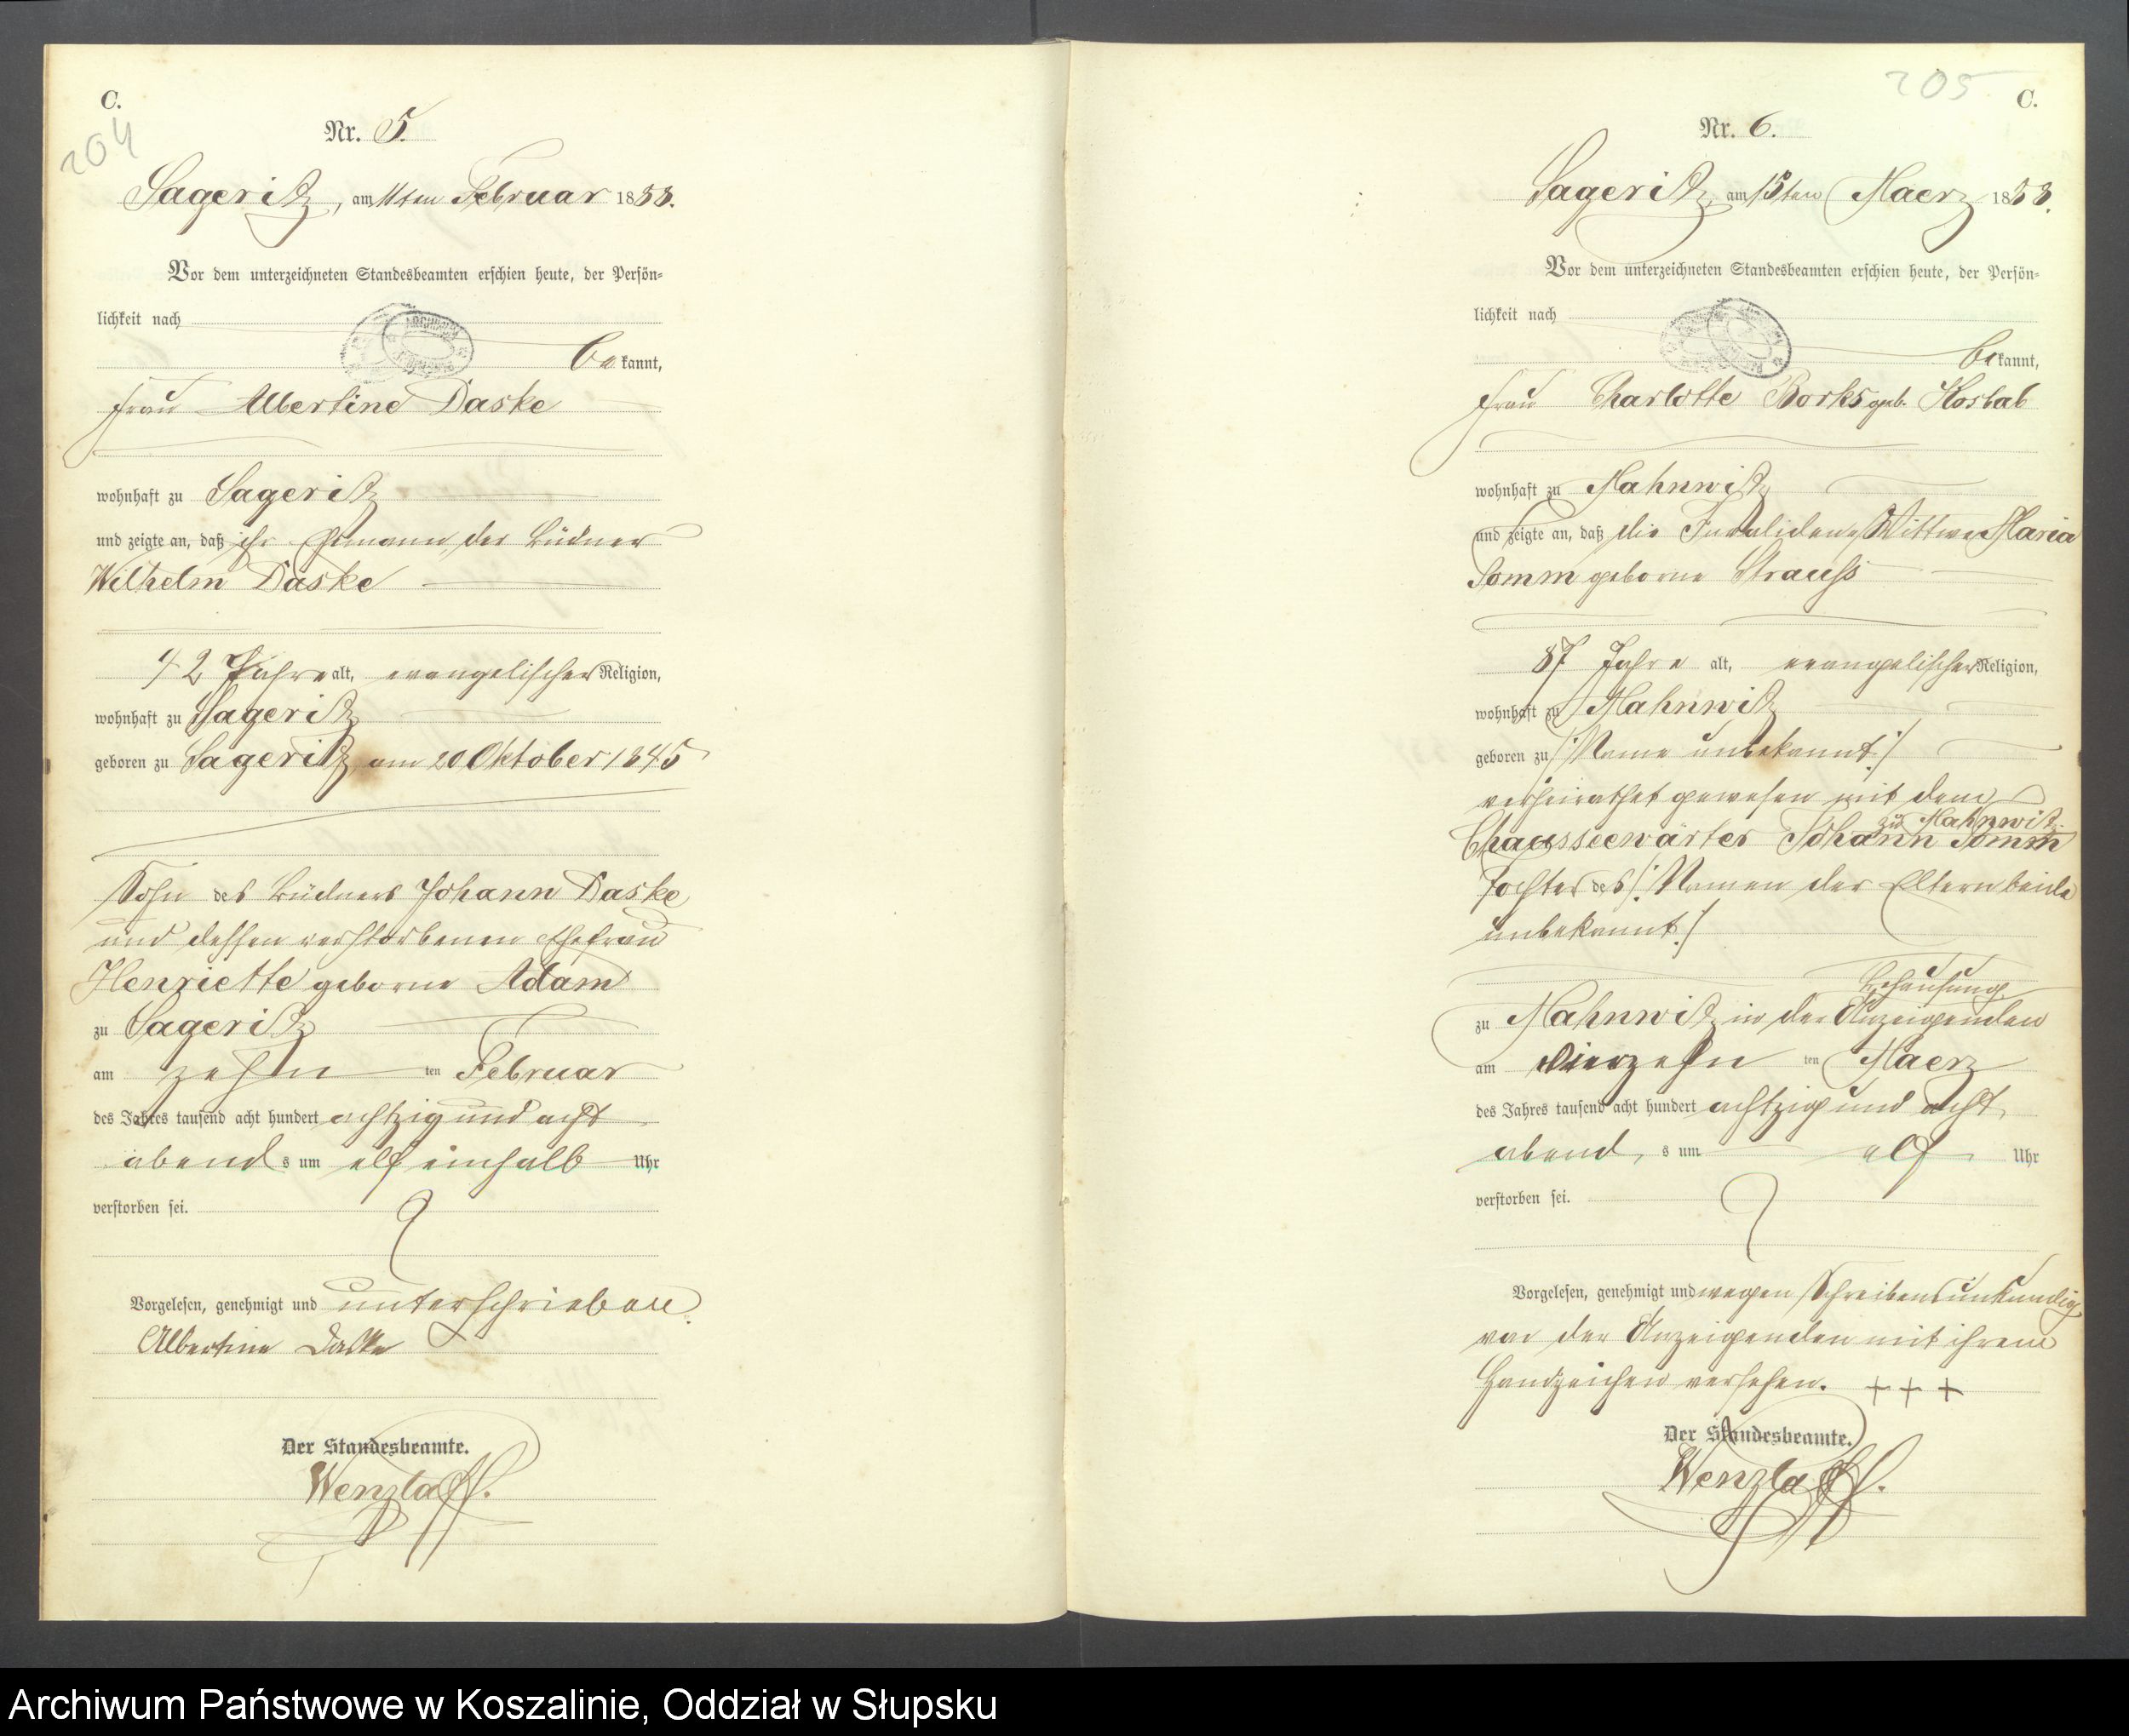 C.
204
Nr. 5.
Sageritz, am 11ten Februar 1888.
Vor dem unterzeichneten Standesbeamten erschien heute, der Persön-
lichkeit nach
bekannt,
Frau Albertine Daske
wohnhaft zu Sageritz
und zeigte an, daß ihr Ehmann, der Büdner
Wilhelm Daske
42 Jahre alt, evangelischer Religion,
wohnhaft zu Sageritz
geboren zu Sageritz, am 20 Oktober 1845
Sohn des Büdners Johann Daske
und dessen verstorbenen Ehefrau
Henriette geborne Adam
zu Sageritz
am zehn ten Februar
des Jahres tausend acht hundert achtzig und acht
abends um elf einhalb Uhr
verstorben sei.
Vorgelesen, genehmigt und unterschrieben.
Albertine Daske
Der Standesbeamte.
Wenzlaff.
205
C.
Nr. 6.
Sageritz, am 15ten Maerz 1888.
Vor dem unterzeichneten Standesbeamten erschien heute, der Persön-
lichkeit nach
bekannt,
Frau Charlotte Borks geb. Kosbab
wohnhaft zu Mahnwitz
und zeigte an, daß die Invaliden Wittwe Maria
Somm geborne Strauss
87 Jahre alt, evangelischer Religion,
wohnhaft zu Mahnwitz
geboren zu /: Name unbekannt :/
verheirathet gewesen mit dem
zu Mahnwitz
Chausseewärter Johann Somm
Tochter des /: Namen der Eltern beide
unbekannt :/
Behausung
zu Mahnwitz in der Anzeigenden
am vierzehn ten Maerz
des Jahres tausend acht hundert achtzig und acht
abends um elf Uhr
verstorben sei.
Vorgelesen, genehmigt und wegen Schreibensunkundig
von der Anzeigenden mit ihrem
Handzeichen versehen. + + +
Der Standesbeamte.
Wenzlaff.
Archiwum Państwowe w Koszalinie, Oddział w Słupsku